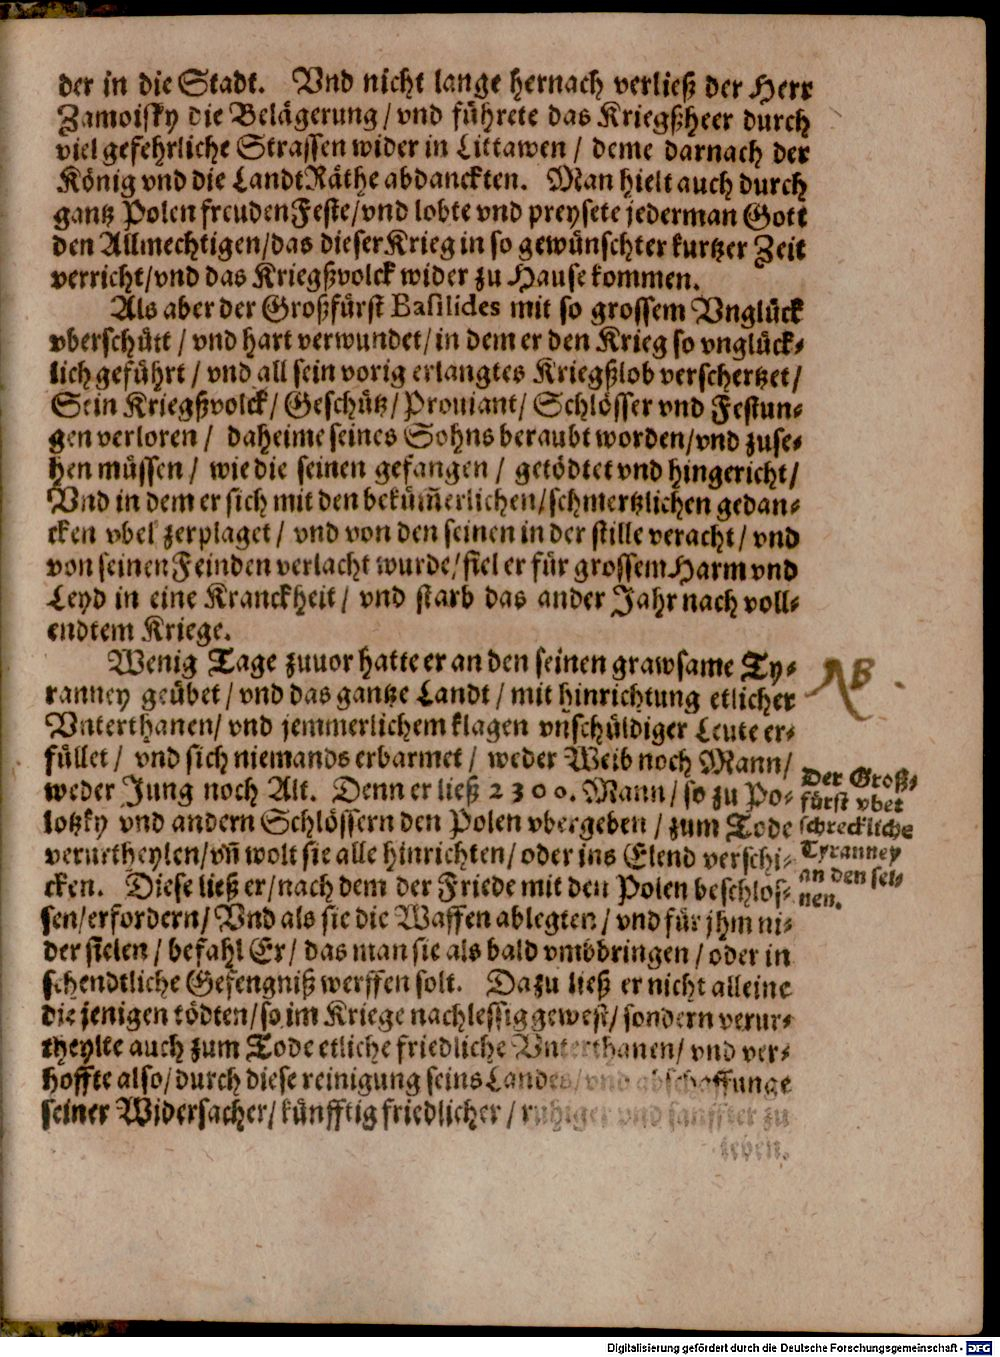 der in die Stadt. Vnd nicht lange hernach verließ der Herr
Zamoisky die Belägerung / vnd führete das Kriegßheer durch
viel gefehrliche Strassen wider in Littawen / deme darnach der
König vnd die LandtRäthe abdanckten. Man hielt auch durch
gantz Polen freuden Feste / vnd lobte vnd preysete jederman Gott
den Allmechtigen / das dieser Krieg in so gewünschter kurtzer Zeit
verricht / vnd das Kriegßvolck wider zu Hause kommen.
Als aber der Großfürst Basilides mit so grossem Vnglück
vberschütt / vnd hart verwundet / in dem er den Krieg so vnglück-
lich geführt / vnd all sein vorig erlangtes Kriegßlob verschertzet /
Sein Kriegßvolck / Geschütz / Prouiant / Schlösser vnd Festun-
gen verloren / daheime seines Sohns beraubt worden / vnd zuse-
hen müssen / wie die seinen gefangen / getödtet vnd hingericht /
Vnd in dem er sich mit den beküm̃erlichen / schmertzlichen gedan-
cken vbel zerplaget / vnd von den seinen in der stille veracht / vnd
von seinen Feinden verlacht wurde / fiel er für grossem Harm vnd
Leyd in eine Kranckheit / vnd starb das ander Jahr nach voll-
endtem Kriege.
Wenig Tage zuuor hatte er an den seinen grawsame Ty-
NB
ranney geübet / vnd das gantze Landt / mit hinrichtung etlicher
Vnterthanen / vnd jemmerlichem klagen vnschüldiger Leute er-
füllet / vnd sich niemands erbarmet / weder Weib noch Mann /
weder Jung noch Alt. Denn er ließ 2300. Mann / so zu Po-
lotzky vnd andern Schlössern den Polen vbergeben / zum Tode
verurtheylen / vn̄ wolt sie alle hinrichten / oder ins Elend verschi-
cken. Diese ließ er / nach dem der Friede mit den Polen beschlos-
sen / erfordern / Vnd als sie die Waffen ablegten / vnd für jhm ni-
der fielen / befahl Er / das man sie als bald vmbbringen / oder in
schendtliche Gefengniß werffen solt. Dazu ließ er nicht alleine
die jenigen tödten / so im Kriege nachlessig gewest / sondern verur-
theylte auch zum Tode etliche friedliche Vnterthanen / vnd ver-
hoffte also / durch diese reinigung seins Landes / vnd abschaffunge
seiner Widersacher / künfftig friedlicher / ruhiger vnd sanffter zu
leben.
Der Groß-
fürst vbet
schreckliche
Tyranney
an den sei-
nen.
Digitalisierung gefördert durch die Deutsche Forschungsgemeinschaft - DFG